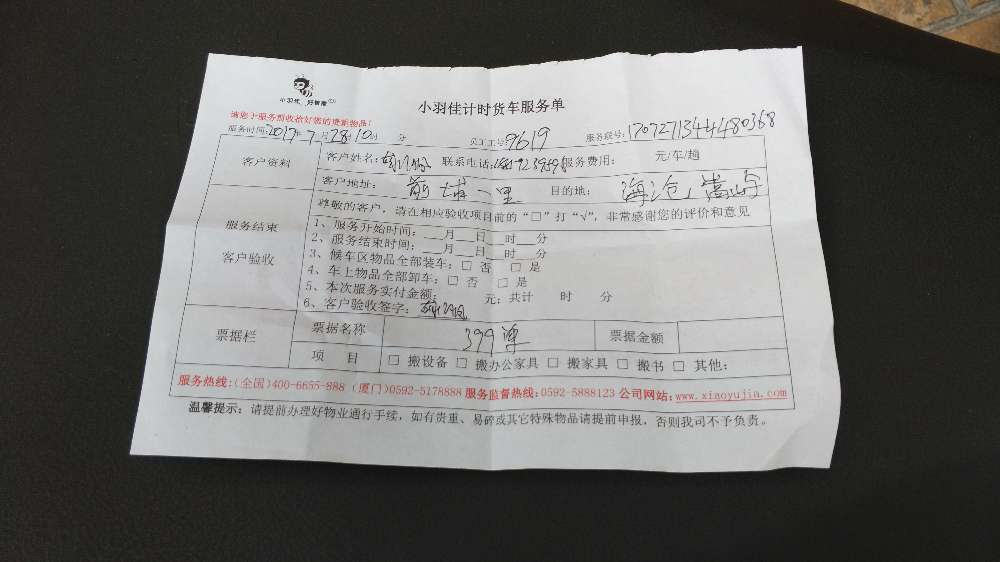 小羽佳 好管家
小羽佳计时货车服务单
请您于服务前收拾好您的贵重物品!
服务时间:2017年7月28日10时 分 员工工号:9619 服务联号:1707271344480368
客户资料
客户姓名: 联系电话: 服务费用: 元/车/趟
客户地址: 前埔一里 目的地: 海沧,嵩屿
服务结束
客户验收
尊敬的客户,请在相应验收项目前的“□”打“√”,非常感谢您的评价和意见
1、服务开始时间:___月___日___时___分
2、服务结束时间:___月___日___时___分
3、候车区物品全部装车:□ 否 □ 是
4、车上物品全部卸车:□ 否 □ 是
5、本次服务实付金额: 元;共计 时 分
6、客户验收签字:
票据栏
票据名称 399单 票据金额
项 目 □ 搬设备 □ 搬办公家具 □ 搬家具 □ 搬书 □ 其他:
服务热线:(全国)400-6655-888 (厦门)0592-5178888 服务监督热线:0592-5888123 公司网站:www.xiaoyujia.com
温馨提示:请提前办理好物业通行手续,如有贵重、易碎或其它特殊物品请提前申报,否则我司不予负责。